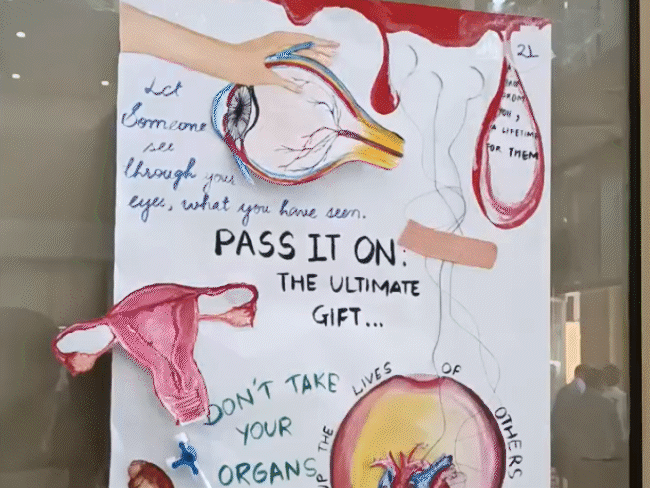 21
FROM
YOU,
A LIFETIME
FOR THEM
Let
Someone
see
through your
eyes, what you have seen.
PASS IT ON:
THE ULTIMATE
GIFT...
DON'T TAKE
YOUR
ORGANS
UP THE LIVES OF OTHERS